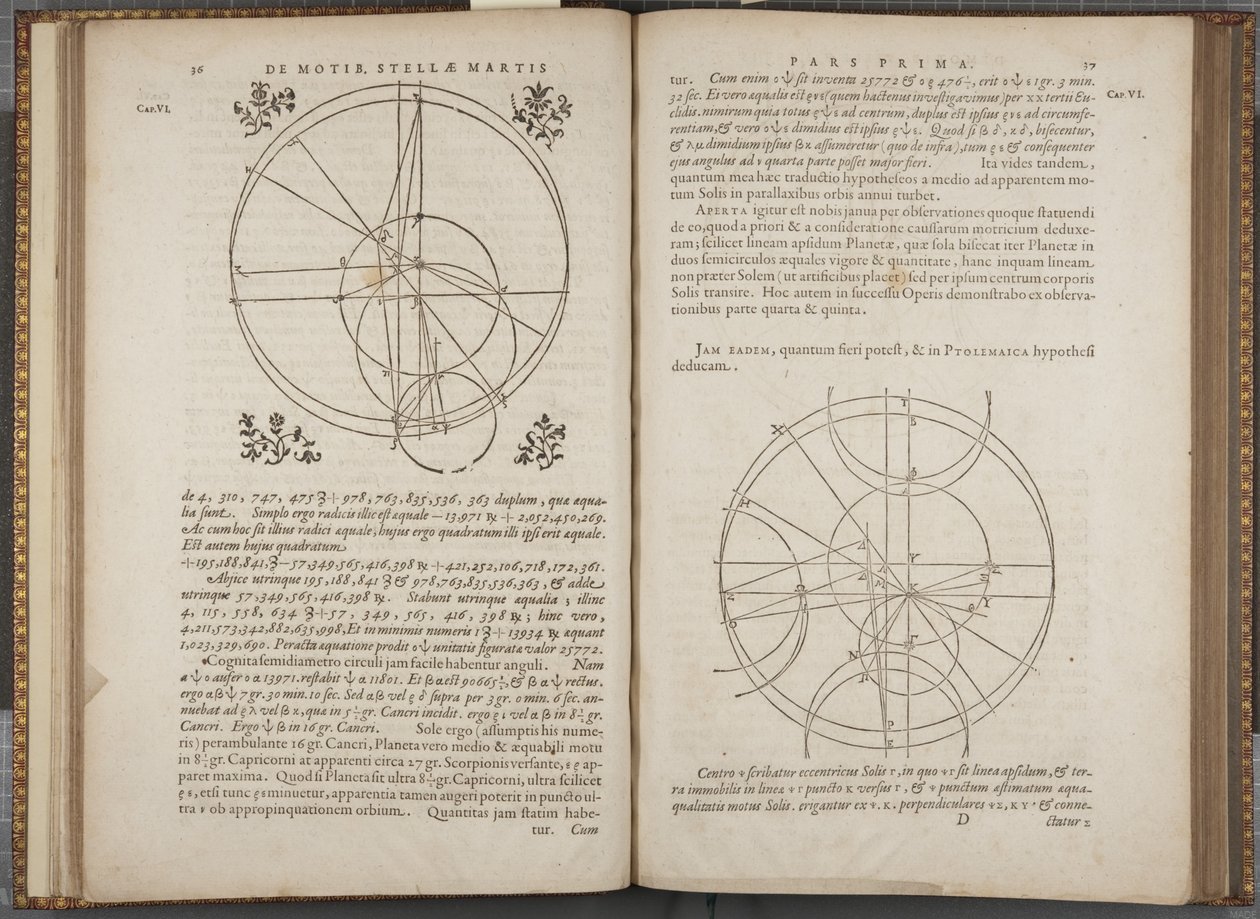 36 DE MOTIB. STELLÆ MARTIS
CAP. VI.
de 4, 310, 747, 475 ʒ -|- 978, 763, 835, 536, 363 duplum, quæ æqua-
lia sunt. Simplo ergo radicis illic est æquale — 13,971 ℞ -|- 2,052,450,269.
Ac cum hoc sit illius radici æquale, hujus ergo quadratum illi ipsi erit æquale.
Est autem hujus quadratum
-|- 195,188,841, ʒ — 57,349,565,416,398 ℞ -|- 421,252,106,718,172,361.
Abjice utrinque 195,188,841 ʒ & 978,763,835,536,363, & adde
utrinque 57,349,565,416,398 ℞. Stabunt utrinque æqualia; illinc
4, 115, 558, 634 ʒ -|- 57, 349, 565, 416, 398 ℞; hinc vero,
4,211,573,342,882,635,998, Et in minimis numeris 1 ʒ -|- 13934 ℞ æquant
1,023,329,690. Peracta æquatione prodit ο ψ unitatis figuratæ valor 25772.
Cognita semidiametro circuli jam facile habentur anguli. Nam
α ψ ο aufer ο α 13971. restabit ψ α 11801. Et β α est 90665½, & β α ψ rectus.
ergo α β ψ 7 gr. 30 min. 10 sec. Sed α β vel ϱ δ supra per 3 gr. 0 min. 6 sec. an-
nuebat ad ϱ λ vel β κ, quæ in 5½ gr. Cancri incidit. ergo ϱ ι vel α β in 8½ gr.
Cancri. Ergo ψ β in 16 gr. Cancri. Sole ergo (assumptis his nume-
ris) perambulante 16 gr. Cancri, Planeta vero medio & æquabili motu
in 8½ gr. Capricorni at apparenti circa 27 gr. Scorpionis versante, ε ϱ ap-
paret maxima. Quod si Planeta sit ultra 8½ gr. Capricorni, ultra scilicet
ϱ ε, etsi tunc ϱ ε minuetur, apparentia tamen augeri poterit in puncto ul-
tra ν ob appropinquationem orbium. Quantitas jam statim habe-
tur. Cum
PARS PRIMA. 37
CAP. VI.
tur. Cum enim ο ψ sit inventa 25772 & ο ϱ 476½, erit ο ψ ε 1 gr. 3 min.
32 sec. Ei vero æqualis est ϱ ν ε (quem hactenus investigavimus) per XX tertii Eu-
clidis. nimirum quia totus ϱ ψ ε ad centrum, duplus est ipsius ϱ ν ε ad circumfe-
rentiam, & vero ο ψ ε dimidius est ipsius ϱ ψ ε. Quod si β δ, κ δ, bisecentur,
& λ μ dimidium ipsius β κ assumeretur (quo de infra), tum ϱ ε & consequenter
ejus angulus ad ν quarta parte posset major fieri. Ita vides tandem,
quantum mea hæc traductio hypotheseos a medio ad apparentem mo-
tum Solis in parallaxibus orbis annui turbet.
APERTA igitur est nobis janua per observationes quoque statuendi
de eo, quod a priori & a consideratione caussarum motricium deduxe-
ram; scilicet lineam apsidum Planetæ, quæ sola bisecat iter Planetæ in
duos semicirculos æquales vigore & quantitate, hanc inquam lineam
non præter Solem (ut artificibus placet) sed per ipsum centrum corporis
Solis transire. Hoc autem in successu Operis demonstrabo ex observa-
tionibus parte quarta & quinta.
JAM EADEM, quantum fieri potest, & in PTOLEMAICA hypothesi
deducam.
T
B
X
Φ
H
Δ
Υ
K
M
Ξ
Υ
Ω
Θ
Σ
O
Γ
N
Π
P
E
Centro ψ scribatur eccentricus Solis Γ, in quo ψ Γ sit linea apsidum, & ter-
ra immobilis in linea ψ Γ puncto K versus Γ, & ψ punctum æstimatum æqua-
qualitatis motus Solis. erigantur ex ψ, K. perpendiculares ψ Σ, K Υ. & conne-
D ctatur Σ